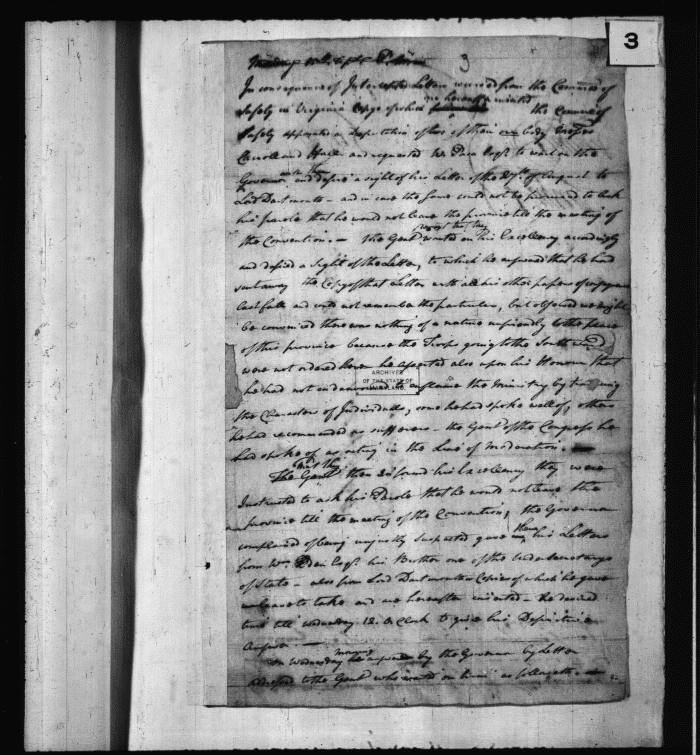 3
3
In consequence of Intercepted Letters received from the Committee of
Safety in Virginia Copys of which are hereafter inserted the Council of
Safety appointed a Deputation of two of their own body Messrs
Carroll and Hall and requested Wm Paca Esqr. to wait on the
Governor and desire a sight of his Letter of the 27th. of August to
Lord Dartmouth - and in case the same could not be procured to ask
his parole that he would not leave the province till the meeting of
the Convention. - The Gentn waited on his Excellency accordingly
and desired a Sight of the Letter, to which he answered that he had
sent away the Copy of that Letter with all his other papers of consequence
last fall and could not remember the particulars, but observed we might
be convinced there was nothing of a nature unfriendly to the peace
of this province because the Troops going to the Southward
were not ordered here he asserted also upon his Honour that
he had not endeavoured to enflame the Ministry by traducing
the Characters of Individuals, some he had spoke well of, others
he had recommended as sufferers - the Gentn of the Congress he
had spoke of as acting in the Line of Moderation.
The Gentn then Informed his Excellency they were
Instructed to ask his Parole that he would not leave the
province till the meeting of the Convention, the Governor
complained of being unjustly suspected gave them his Letters
from Wm Eden Esqr. his Brother one of the Under Secretarys
of State - also from Lord Dartmouth Copies of which he gave
us leave to take and are hereafter inserted - he desired
time till Wednesday 12 O Clock to give his Definitive
Answer. -
On Wednesday morning by the Governor by Letter
addressed to the Gentn who waited on him as follows -
ARCHIVES
OF THE STATE OF
MARYLAND